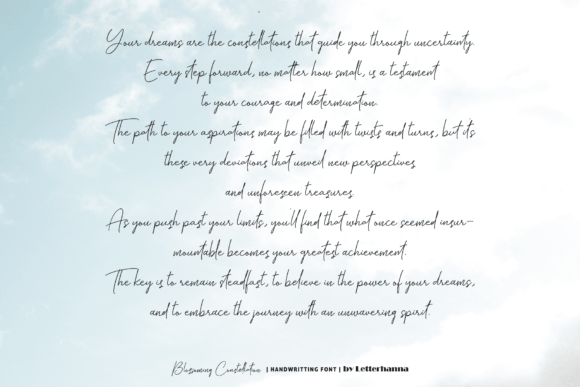 Your dreams are the constellations that guide you through uncertainty.
Every step forward, no matter how small, is a testament
to your courage and determination.
The path to your aspirations may be filled with twists and turns, but it's
these very deviations that unveil new perspectives
and unforeseen treasures.
As you push past your limits, you'll find that what once seemed insur-
mountable becomes your greatest achievement.
The key is to remain steadfast, to believe in the power of your dreams,
and to embrace the journey with an unwavering spirit.
Blossoming Constellation | HANDWRITTING FONT | by Letterhanna